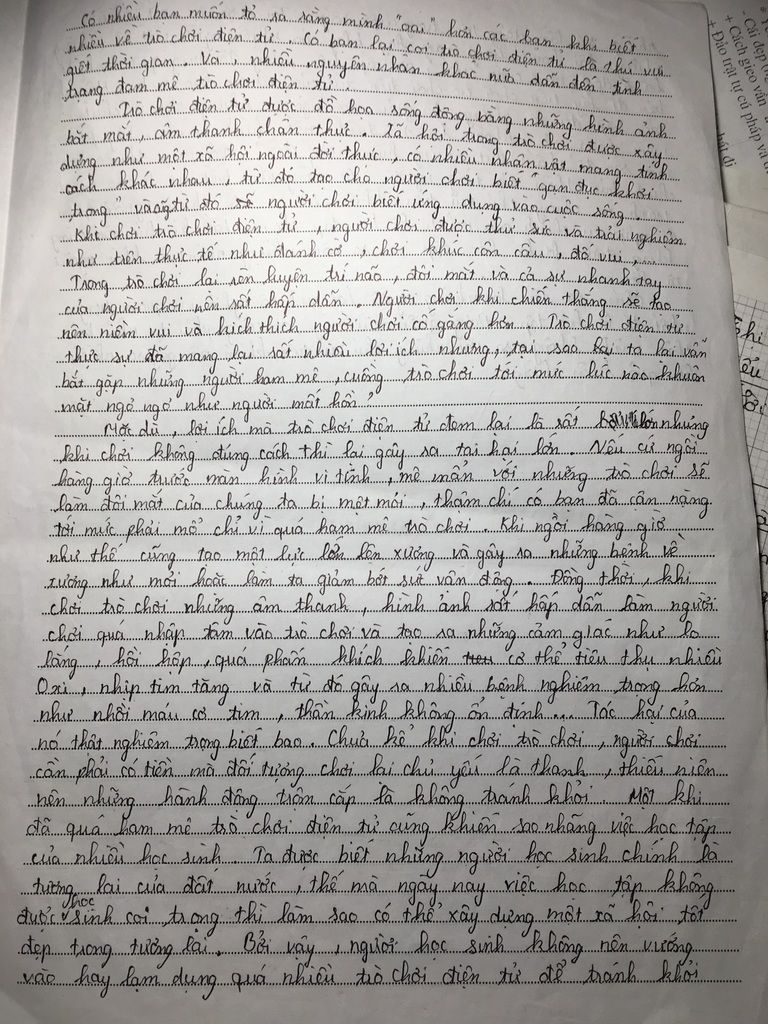 Có nhiều bạn muốn tỏ ra rằng mình "oai" hơn các bạn khi biết
nhiều về trò chơi điện tử. Có bạn lại coi trò chơi điện tử là thú vui
giết thời gian. Và, nhiều nguyên nhân khác nữa dẫn đến tình
trạng đam mê trò chơi điện tử.
Trò chơi điện tử được đồ họa sống động bằng những hình ảnh
bắt mắt, âm thanh chân thực. Xã hội trong trò chơi được xây
dựng như một xã hội ngoài đời thực, có nhiều nhân vật mang tính
cách khác nhau, từ đó tạo cho người chơi biết "gạn đục khơi
trong" và từ đó người chơi biết ứng dụng vào cuộc sống.
Khi chơi trò chơi điện tử, người chơi được thử sức và trải nghiệm
như trên thực tế như đánh cờ, chơi khúc côn cầu, đố vui,...
Trong trò chơi lại rèn luyện trí não, đôi mắt và cả sự nhanh tay
của người chơi nên rất hấp dẫn. Người chơi khi chiến thắng sẽ tạo
nên niềm vui và kích thích người chơi cố gắng hơn. Trò chơi điện tử
thực sự đã mang lại rất nhiều lợi ích nhưng, tại sao ta lại vẫn
bắt gặp những người ham mê, cuồng trò chơi tới mức lúc nào khuôn
mặt ngơ ngơ như người mất hồn?
Mặc dù, lợi ích mà trò chơi điện tử đem lại là rất lớn nhưng
khi chơi không đúng cách thì lại gây ra tai hại lớn. Nếu cứ ngồi
hàng giờ trước màn hình vi tính, mê mẩn với những trò chơi sẽ
làm đôi mắt của chúng ta bị mệt mỏi, thậm chí có bạn đã cận nặng
tới mức phải mổ chỉ vì quá ham mê trò chơi. Khi ngồi hàng giờ
như thế cũng tạo một lực lớn lên xương và gây ra những bệnh về
xương như mỏi hoặc làm ta giảm bớt sức vận động. Đồng thời, khi
chơi trò chơi những âm thanh, hình ảnh rất hấp dẫn làm người
chơi quá nhập tâm vào trò chơi và tạo ra những cảm giác như lo
lắng, hồi hộp, quá phấn khích khiến cơ thể tiêu thụ nhiều
Oxi, nhịp tim tăng và từ đó gây ra nhiều bệnh nghiêm trọng hơn
như nhồi máu cơ tim, thần kinh không ổn định... Tác hại của
nó thật nghiêm trọng biết bao. Chưa kể khi chơi trò chơi, người chơi
cần phải có tiền mà đối tượng chơi lại chủ yếu là thanh, thiếu niên
nên những hành động trộm cắp là không tránh khỏi. Một khi
đã quá ham mê trò chơi điện tử cũng khiến sao nhãng việc học tập
của nhiều học sinh. Ta được biết những người học sinh chính là
tương lai của đất nước, thế mà ngày nay việc học tập không
được học sinh coi trọng thì làm sao có thể xây dựng một xã hội tốt
đẹp trong tương lai. Bởi vậy, người học sinh không nên vướng
vào hay lạm dụng quá nhiều trò chơi điện tử để tránh khỏi
- Cái đẹp
+ Cách gieo vần
+ Đảo trật tự cú pháp và